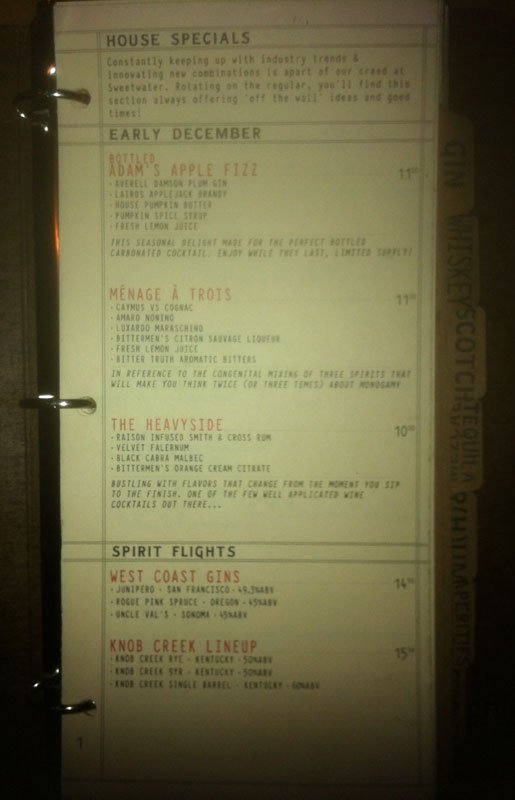 HOUSE SPECIALS
Constantly keeping up with industry trends &
innovating new combinations is apart of our creed at
Sweetwater. Rotating on the regular, you'll find this
section always offering 'off the wall' ideas and good
times!
EARLY DECEMBER
BOTTLED
ADAM'S APPLE FIZZ 11
· AVERELL DAMSON PLUM GIN
· LAIRDS APPLEJACK BRANDY
· HOUSE PUMPKIN BUTTER
· PUMPKIN SPICE SYRUP
· FRESH LEMON JUICE
THIS SEASONAL DELIGHT MADE FOR THE PERFECT BOTTLED
CARBONATED COCKTAIL. ENJOY WHILE THEY LAST, LIMITED SUPPLY!
MÉNAGE À TROIS 11
· CAYMUS VS COGNAC
· AMARO NONINO
· LUXARDO MARASCHINO
· BITTERMEN'S CITRON SAUVAGE LIQUEUR
· FRESH LEMON JUICE
· BITTER TRUTH AROMATIC BITTERS
IN REFERENCE TO THE CONGENITAL MIXING OF THREE SPIRITS THAT
WILL MAKE YOU THINK TWICE (OR THREE TIMES) ABOUT MONOGAMY
THE HEAVYSIDE 10
· RAISON INFUSED SMITH & CROSS RUM
· VELVET FALERNUM
· BLACK CABRA MALBEC
· BITTERMEN'S ORANGE CREAM CITRATE
BUSTLING WITH FLAVORS THAT CHANGE FROM THE MOMENT YOU SIP
TO THE FINISH. ONE OF THE FEW WELL APPLICATED WINE
COCKTAILS OUT THERE...
SPIRIT FLIGHTS
WEST COAST GINS 14
· JUNIPERO - SAN FRANCISCO - 49.3%ABV
· ROGUE PINK SPRUCE - OREGON - 45%ABV
· UNCLE VAL'S - SONOMA - 45%ABV
KNOB CREEK LINEUP 15
· KNOB CREEK RYE - KENTUCKY - 50%ABV
· KNOB CREEK 9YR - KENTUCKY - 50%ABV
· KNOB CREEK SINGLE BARREL - KENTUCKY - 60%ABV
1
GIN
WHISKEY
SCOTCH
TEQUILA